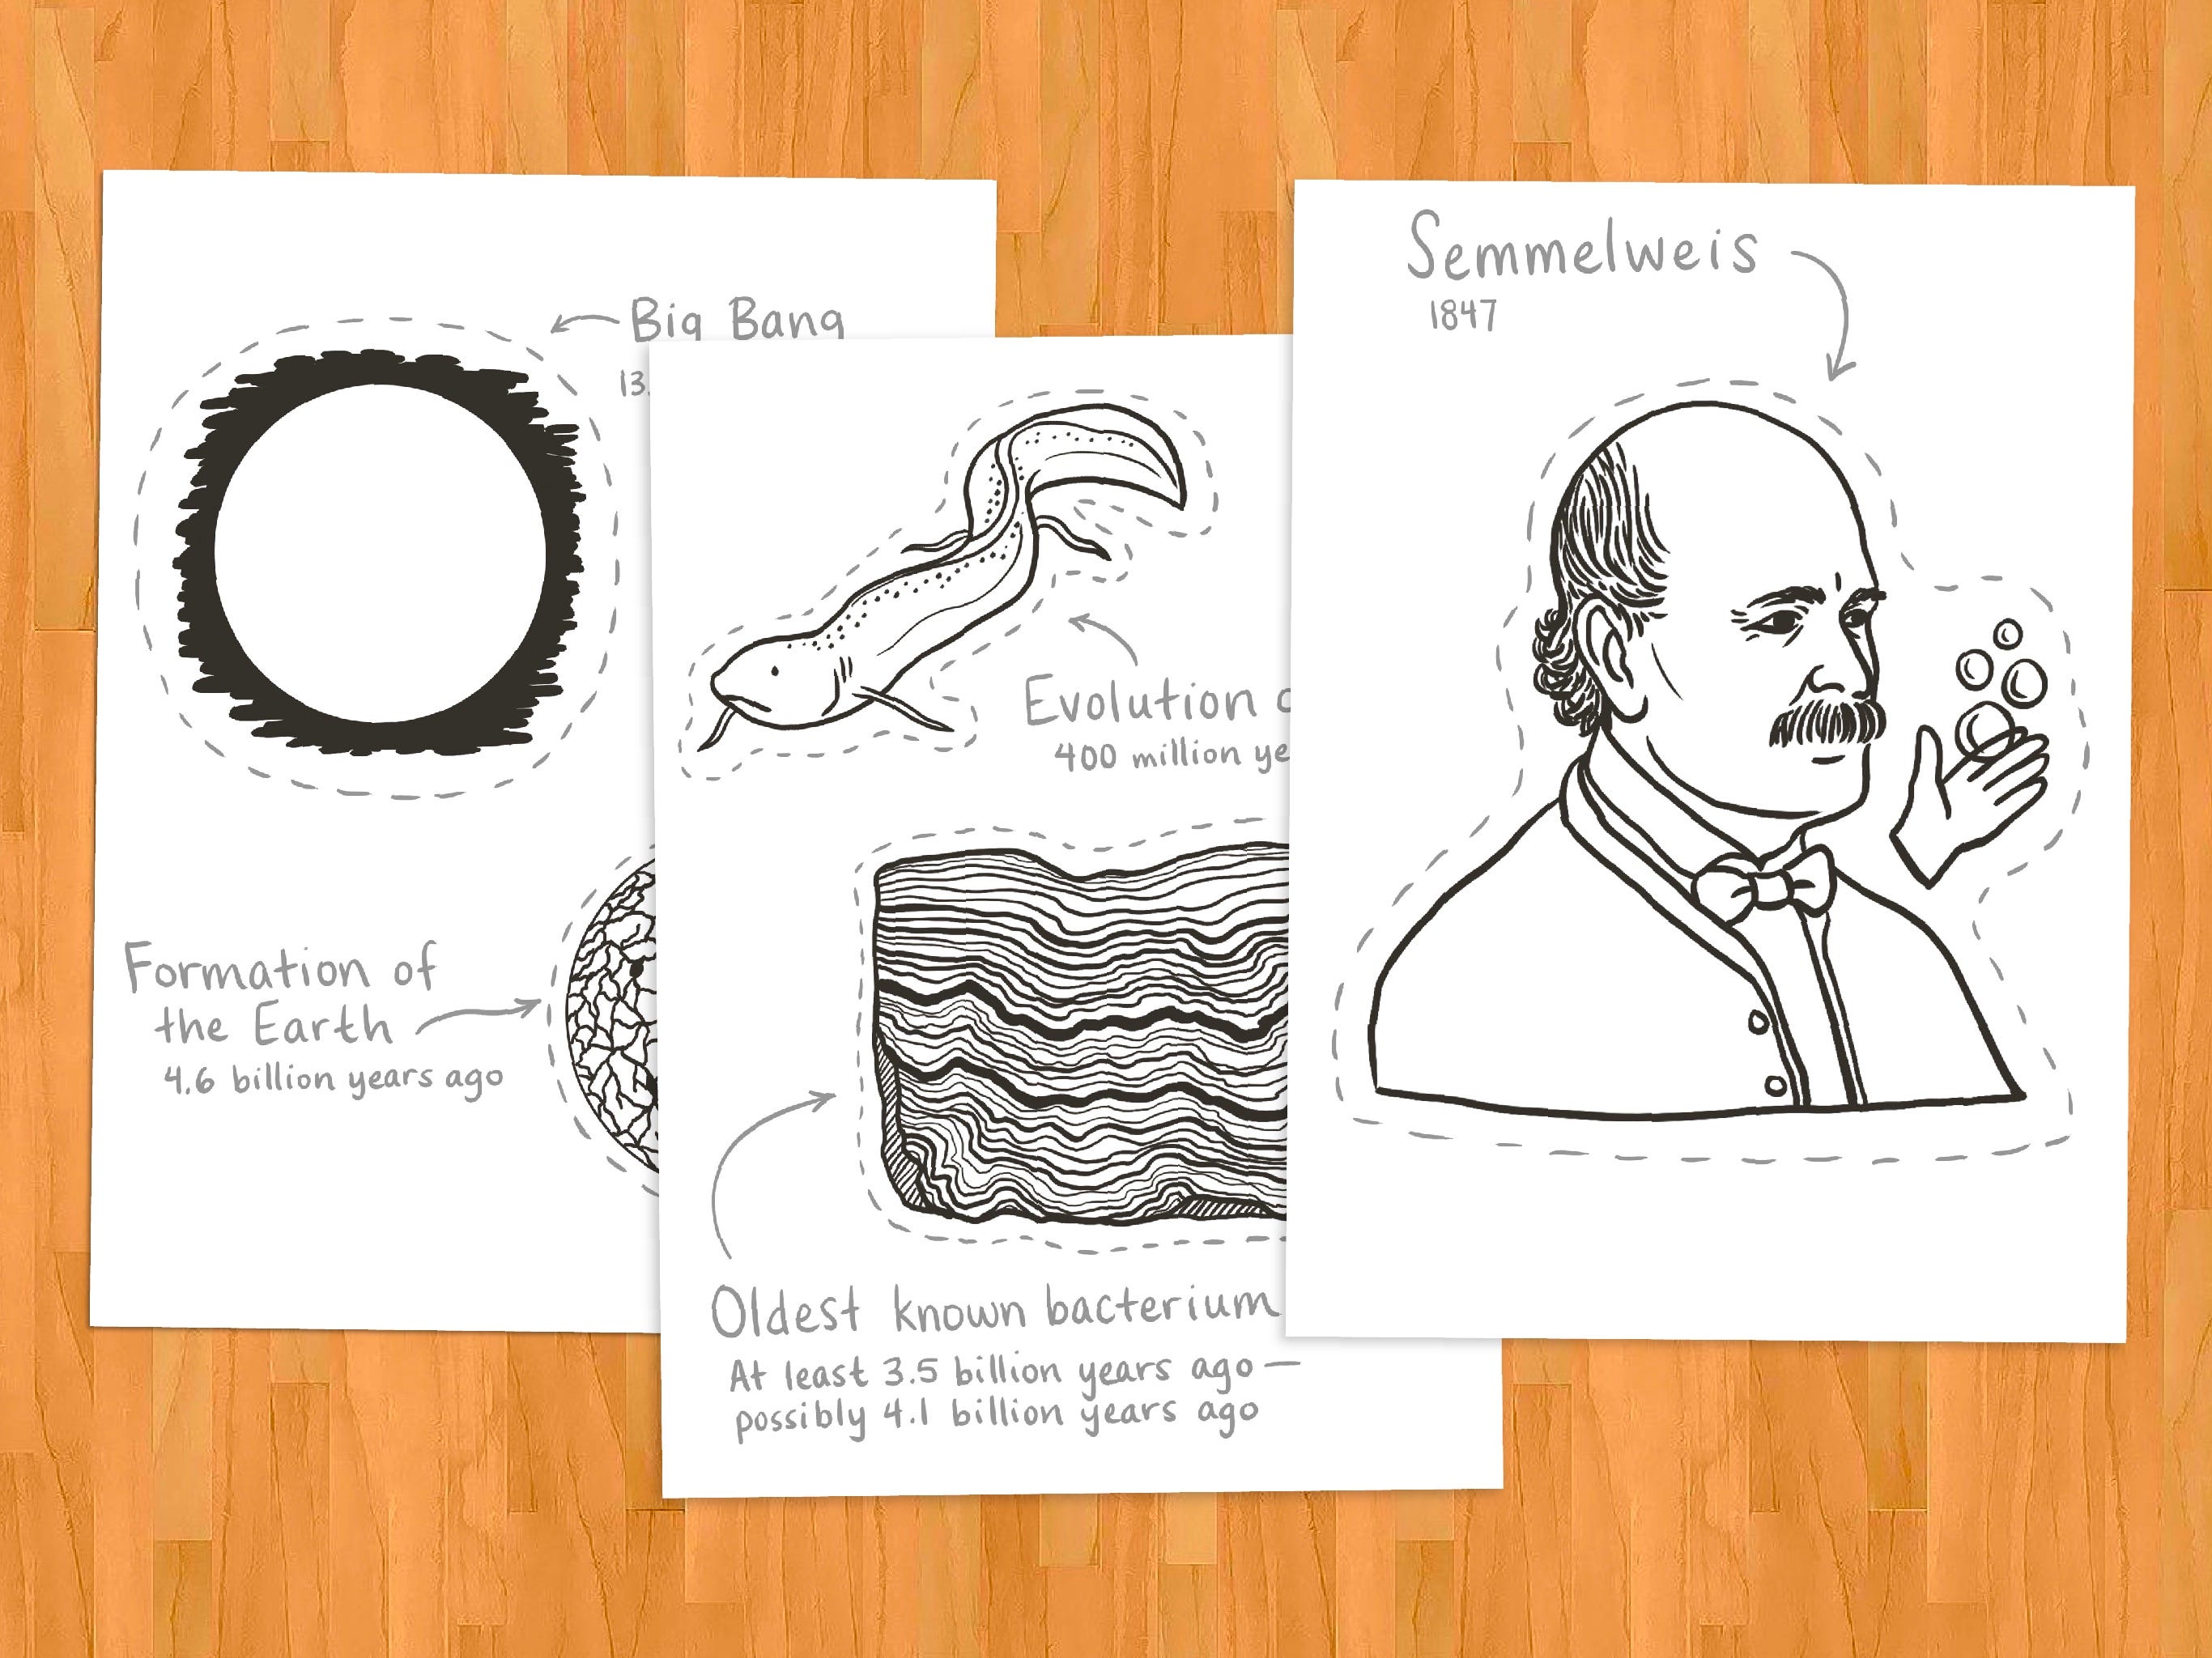 Big Bang
13.
Formation of
the Earth
4.6 billion years ago
Evolution
400 million
Oldest known bacterium
At least 3.5 billion years ago —
possibly 4.1 billion years ago
Semmelweis
1847